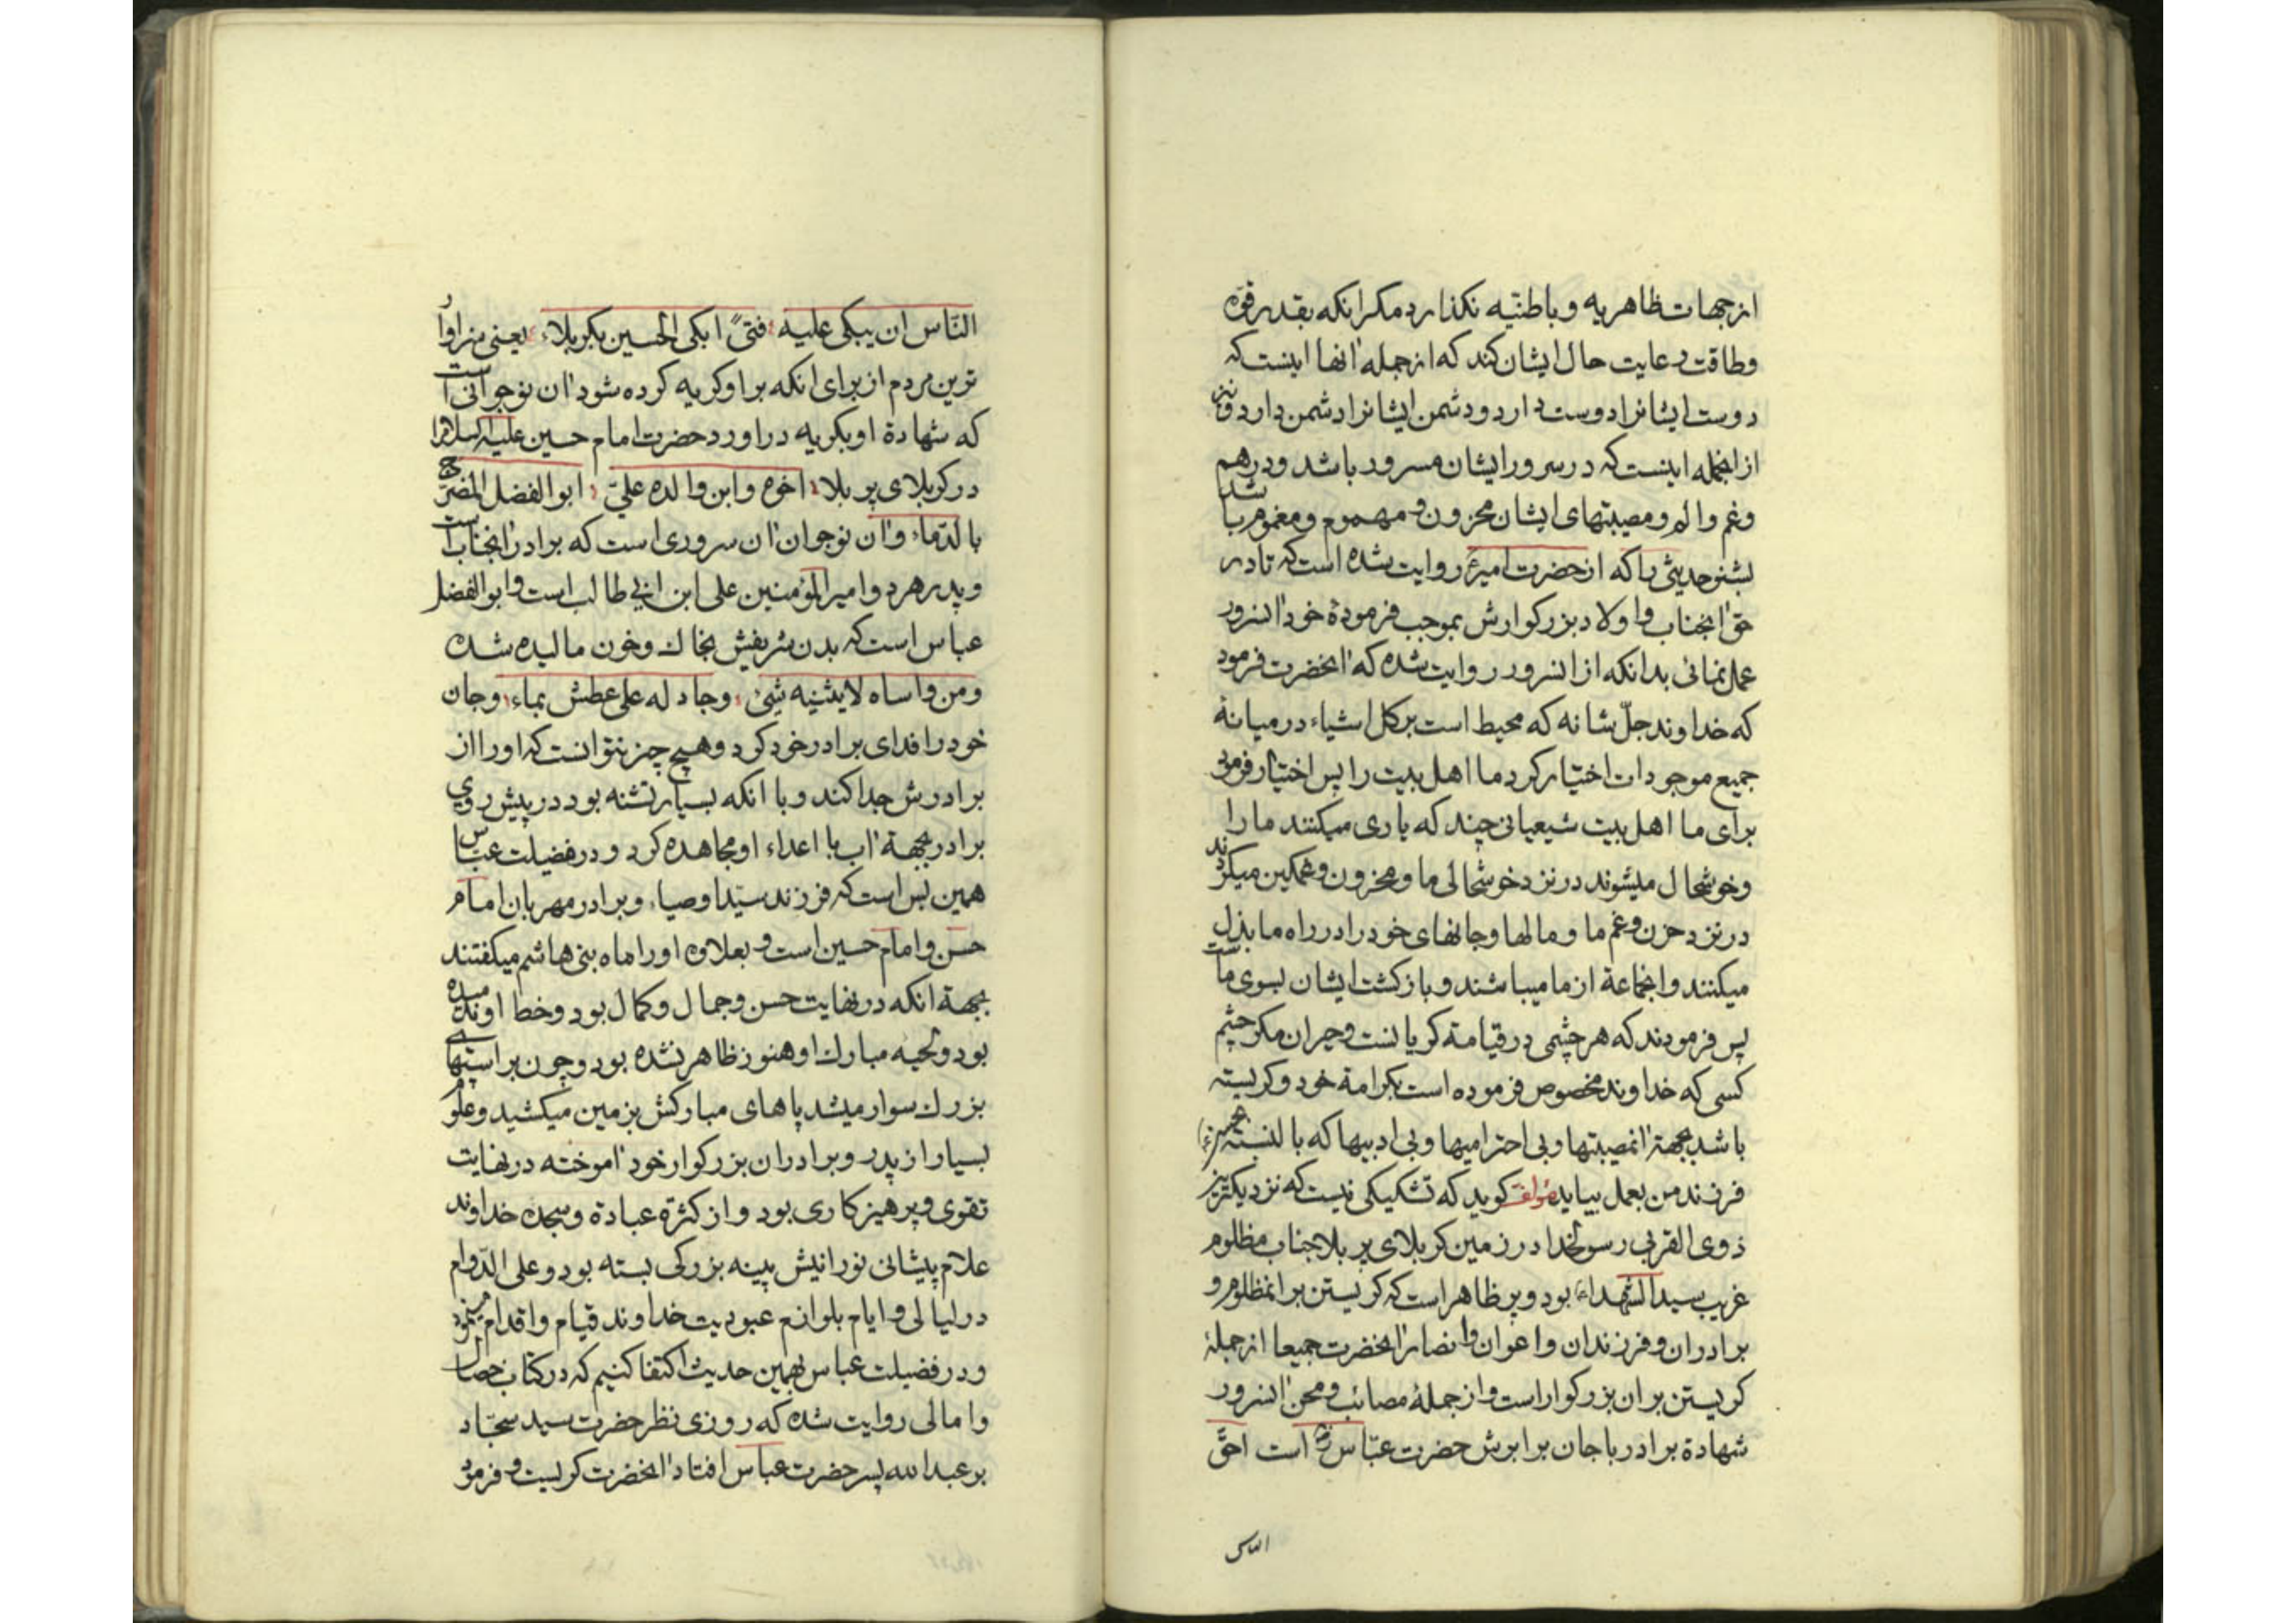 از جهات ظاهریه و باطنیّه نکذارد مکر انکه بقدر قوّه
و طاقت رعایت حال ایشان کند که از جمله انها اینست که
دوست ایشانرا دوست دارد و دشمن ایشانرا دشمن دارد و نیز
از انجمله اینست که در سرور ایشان مسرور باشد و در هم
و غم و الم و مصیبتهای ایشان محزون و مهموم و مغموم باشد
بشنو حدیثی را که از حضرت امیر روایت شده است که تا در
حق انجناب و اولاد بزرکوارش بموجب فرمودهٔ خود انسرور
عمل نمائی بدانکه از انسرور روایت شده که انحضرت فرمود
که خداوند جلّ شانه که محیط است بر کل اشیاء در میانهٔ
جمیع موجودات اختیار کرد ما اهل بیت را پس اختیار فرمود
برای ما اهل بیت شیعیانی چند که یاری میکنند ما را
و خوشحال میشوند در نزد خوشحالی ما و محزون و غمکین میکردند
در نزد حزن و غم ما و مالها و جانهای خود را در راه ما بذل
میکنند و انجماعة از ما میباشند و بازکشت ایشان بسوی ماست
پس فرمودند که هر چشمی در قیامة کریانست و حیران مکر چشم
کسی که خداوند مخصوص فرموده است بکرامة خود و کریسته
باشد بجهة انمصیبتها و بی احترامیها و بی ادبیها که بالنسبة بحسین
فرزند من بعمل بیاید مؤلف کوید که تشکیکی نیست که نزدیکترین
ذوی القربی رسولخدا در زمین کربلای پر بلا جناب مظلوم
غریب سید الشهداء بود و پر ظاهر است که کریستن بر انمظلوم و
برادران و فرزندان و اعوان و انصار انحضرت جمیعا از جملهٔ
کریستن بر ان بزرکوار است و از جملهٔ مصائب و محن انسرور
شهادة برادر با جان برابرش حضرت عبّاس است احقّ
الناس
النّاس ان یبکی علیه فتیً ابکی الحسین بکربلاء یعنی سزاوار
ترین مردم از برای انکه بر او کریه کرده شود ان نوجوانی است
که شهادة او بکریه در اورد حضرت امام حسین علیه السلام را
در کربلای پر بلا اخوه و ابن والده علیّ ابو الفضل المضرّج
بالدّماء و ان نوجوان ان سروری است که برادر انجناب است
و پدر هر دو امیر المؤمنین علی ابن ابی طالب است و ابو الفضل
عباس است که بدن شریفش بخاك و خون مالیده شده
و من واساه لا یثنیه شئ و جاد له علی عطش بماء و جان
خود را فدای برادر خود کرد و هیچ چیز نتوانست که او را از
برادرش جدا کند و با انکه بسیار تشنه بود در پیش روی
برادر بجهة اب با اعداء او مجاهده کرد و در فضیلت عبّاس
همین بس است که فرزند سیّد اوصیاء و برادر مهربان امام
حسن و امام حسین است و بعلاوه او را ماه بنی هاشم میکفتند
بجهة انکه در نهایت حسن و جمال و کمال بود و خط او ندمیده
بود و لحیه مبارك او هنوز ظاهر نشده بود و چون بر اسبهای
بزرك سوار میشد پاهای مبارکش بزمین میکشید و علوم
بسیار از پدر و برادران بزرکوار خود اموخته در نهایت
تقوی و پرهیزکاری بود و از کثرة عبادة و سجدهٔ خداوند
علام پیشانی نورانیش پینه بزرکی بسته بود و علی الدّوام
در لیالی و ایام بلوازم عبودیت خداوند قیام و اقدام مینمود
و در فضیلت عباس بهمین حدیث اکتفا کنیم که در کتاب خصال
و امالی روایت شده که روزی نظر حضرت سید سجّاد
بر عبد الله پسر حضرت عباس افتاد انحضرت کریست و فرمود